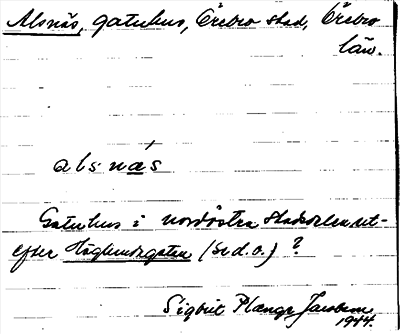 Alsnäs, gatuhus, Örebro stad, Örebro
län.
als·nä́s
Gatuhus i nordöstra stadsdelen ut-
efter (se d.o.) ?
Sigbrit Plænge Jacobson
1944.